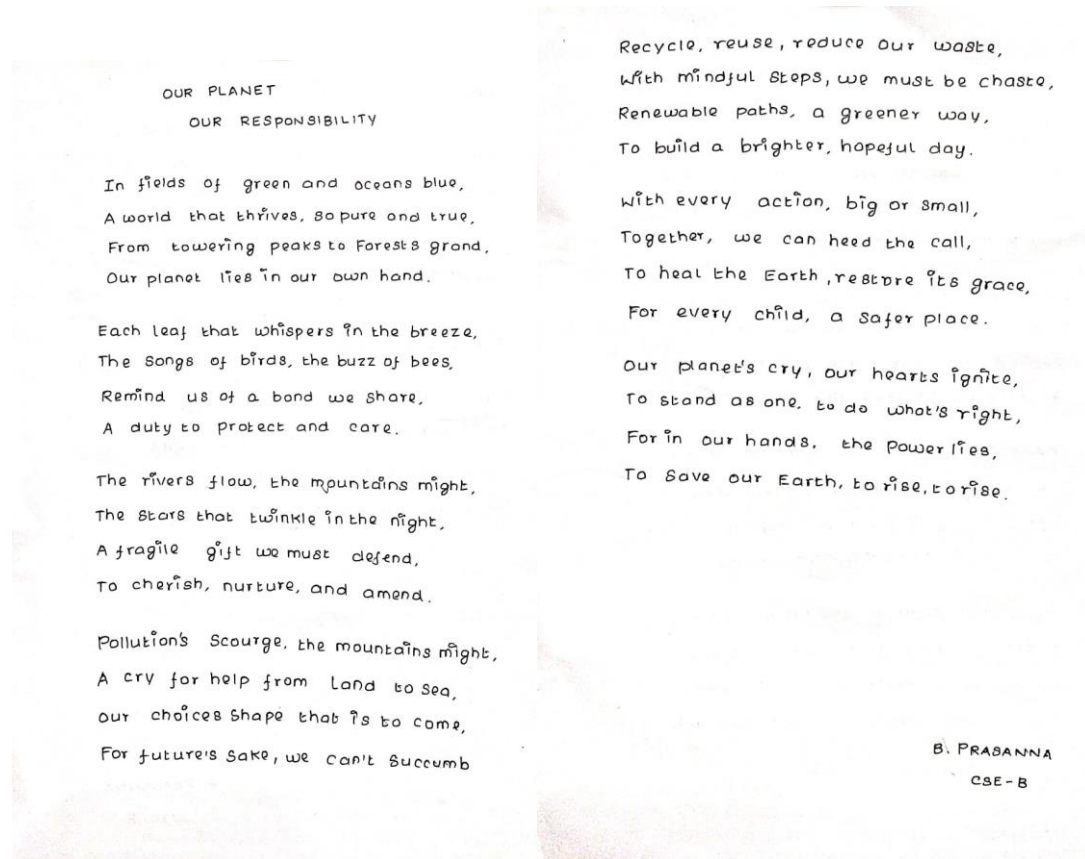 OUR PLANET
OUR RESPONSIBILITY
In fields of green and oceans blue,
A world that thrives, so pure and true,
From towering peaks to Forests grand,
Our planet lies in our own hand.
Each leaf that whispers in the breeze,
The songs of birds, the buzz of bees,
Remind us of a bond we share,
A duty to protect and care.
The rivers flow, the mountains might,
The stars that twinkle in the night,
A fragile gift we must defend,
To cherish, nurture, and amend.
Pollution's Scourge, the mountains might,
A cry for help from Land to sea,
our choices Shape that is to come,
For future's sake, we can't Succumb
Recycle, reuse, reduce our waste,
With mindful steps, we must be chaste,
Renewable paths, a greener way,
To build a brighter, hopeful day.
With every action, big or small,
Together, we can heed the call,
To heal the Earth, restore its grace,
For every child, a safer place.
Our planet's cry, our hearts ignite,
To stand as one, to do what's right,
For in our hands, the power lies,
To save our Earth, to rise, to rise.
B. PRASANNA
CSE-B